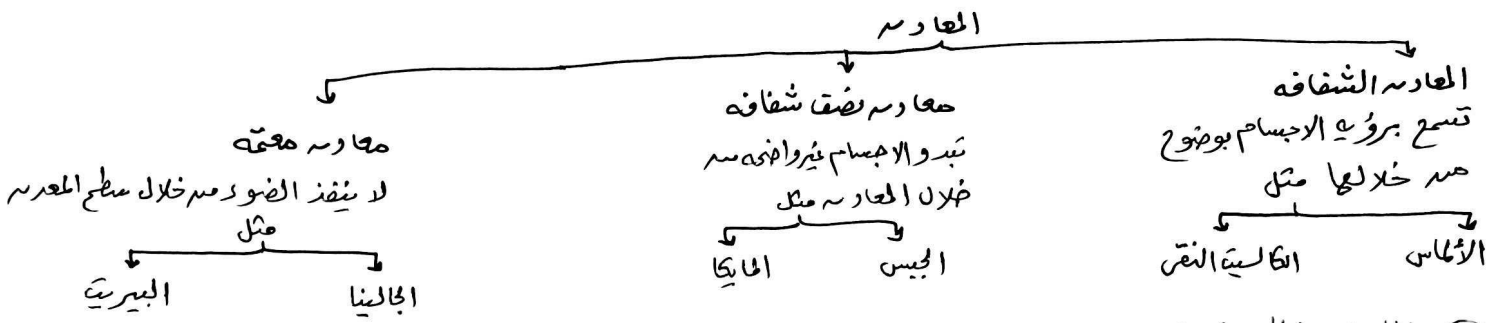 المعادن
المعادن الشفافه
تسمح برؤية الاجسام بوضوح
من خلالها مثل
الألماس
الكالسيت النقى
معادن نصف شفافه
تبدو الاجسام غير واضحه من
خلال المعادن مثل
الجبس
المايكا
معادن معتمه
لا ينفذ الضوء من خلال سطح المعدن
مثل
الجالينا
البيريت